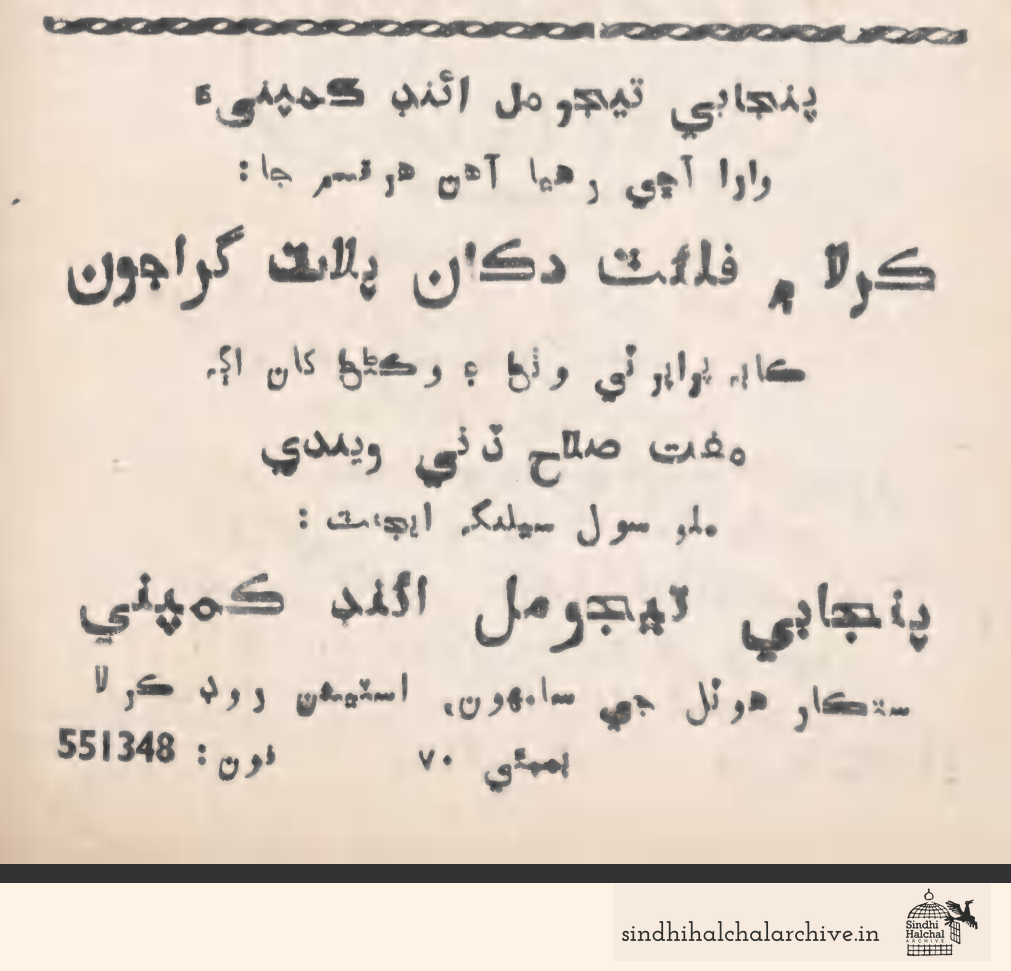 پنجابي تيجو مل ائنڊ ڪمپنيءَ
وارا آڇي رهيا آهن هر قسم جا:
ڪرلا ۾ فلئٽ دڪان پلاٽ گراجون
ڪابہ پراپرٽي وٺڻ ۽ وڪڻڻ کان اڳہ
مفت صلاح ڏني ويندي
ملو سول سيلنگ ايجنٽ :
پنجابي تيجو مل ائنڊ ڪمپني
ستڪار هوٽل جي سامهون، اسٽيشن روڊ ڪرلا
بمبئي ۷۰ فون: 551348
sindhihalchalarchive.in
Sindhi
Halchal
ARCHIVE